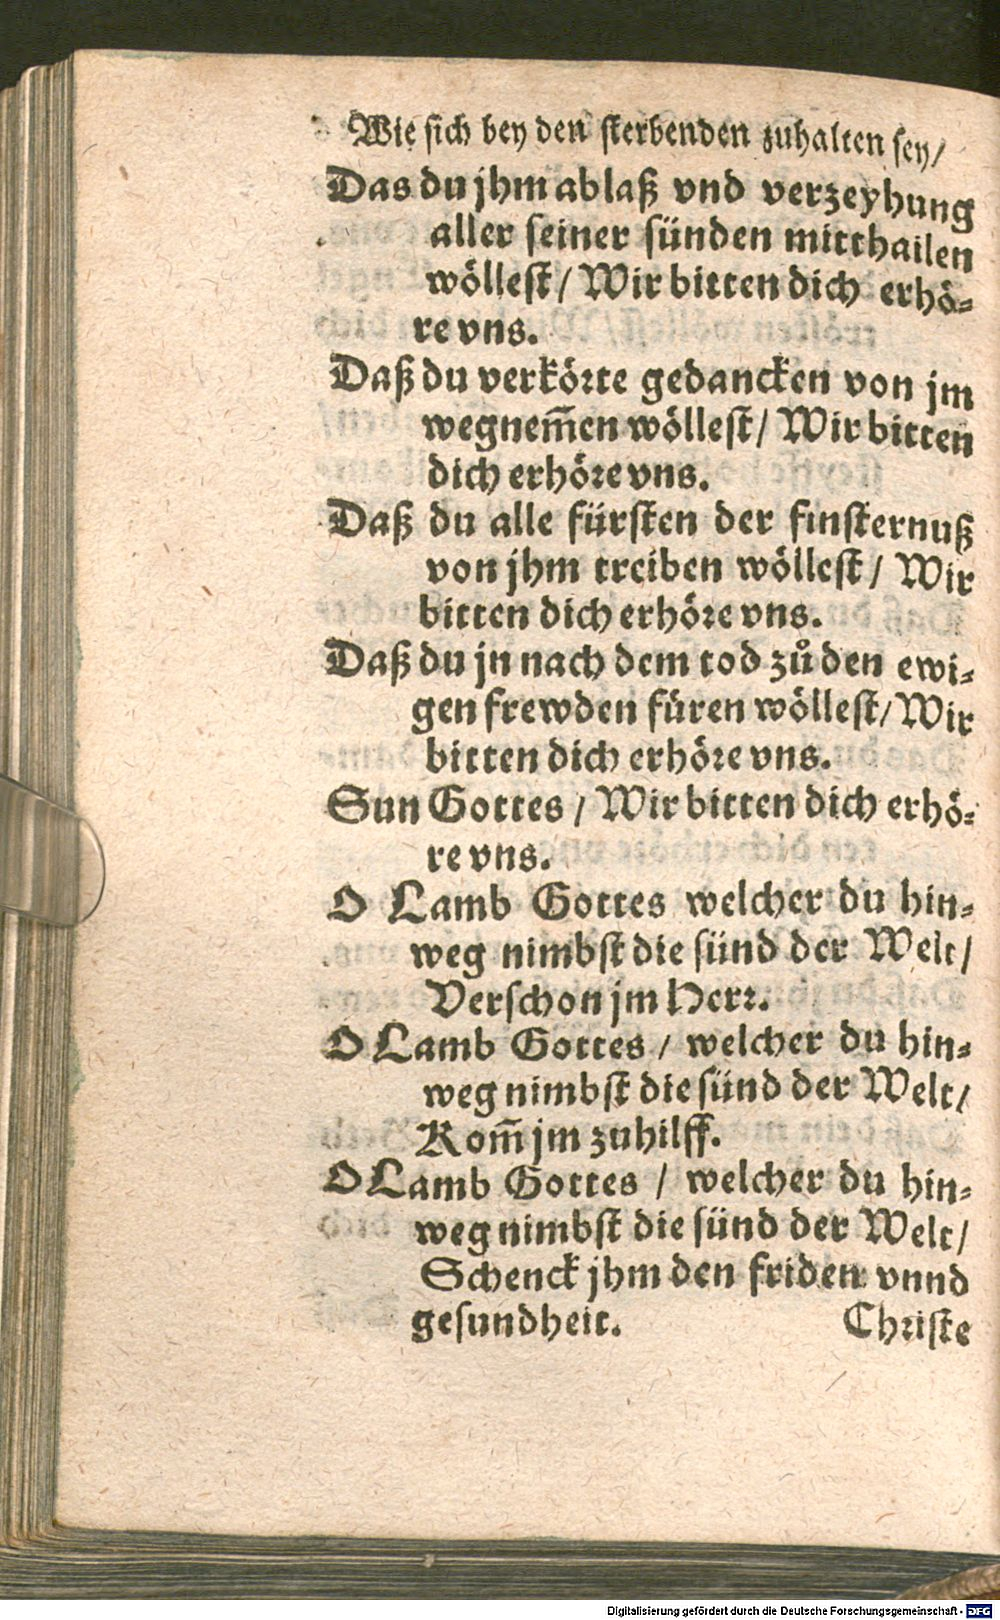 Wie sich bey den sterbenden zuhalten sey/
Das du jhm ablaß vnd verzeyhung
aller seiner sünden mitthailen
wöllest/ Wir bitten dich erhö-
re vns.
Daß du verkörte gedancken von jm
wegnem̃en wöllest/ Wir bitten
dich erhöre vns.
Daß du alle fürsten der finsternuß
von jhm treiben wöllest/ Wir
bitten dich erhöre vns.
Daß du jn nach dem tod zů den ewi-
gen frewden füren wöllest/ Wir
bitten dich erhöre vns.
Sun Gottes / Wir bitten dich erhö-
re vns.
O Lamb Gottes welcher du hin-
weg nimbst die sünd der Welt/
Verschon jm Herr.
O Lamb Gottes / welcher du hin-
weg nimbst die sünd der Welt/
Kom̃ jm zuhilff.
O Lamb Gottes / welcher du hin-
weg nimbst die sünd der Welt/
Schenck jhm den friden vnnd
gesundheit. Christe
Digitalisierung gefördert durch die Deutsche Forschungsgemeinschaft - DFG